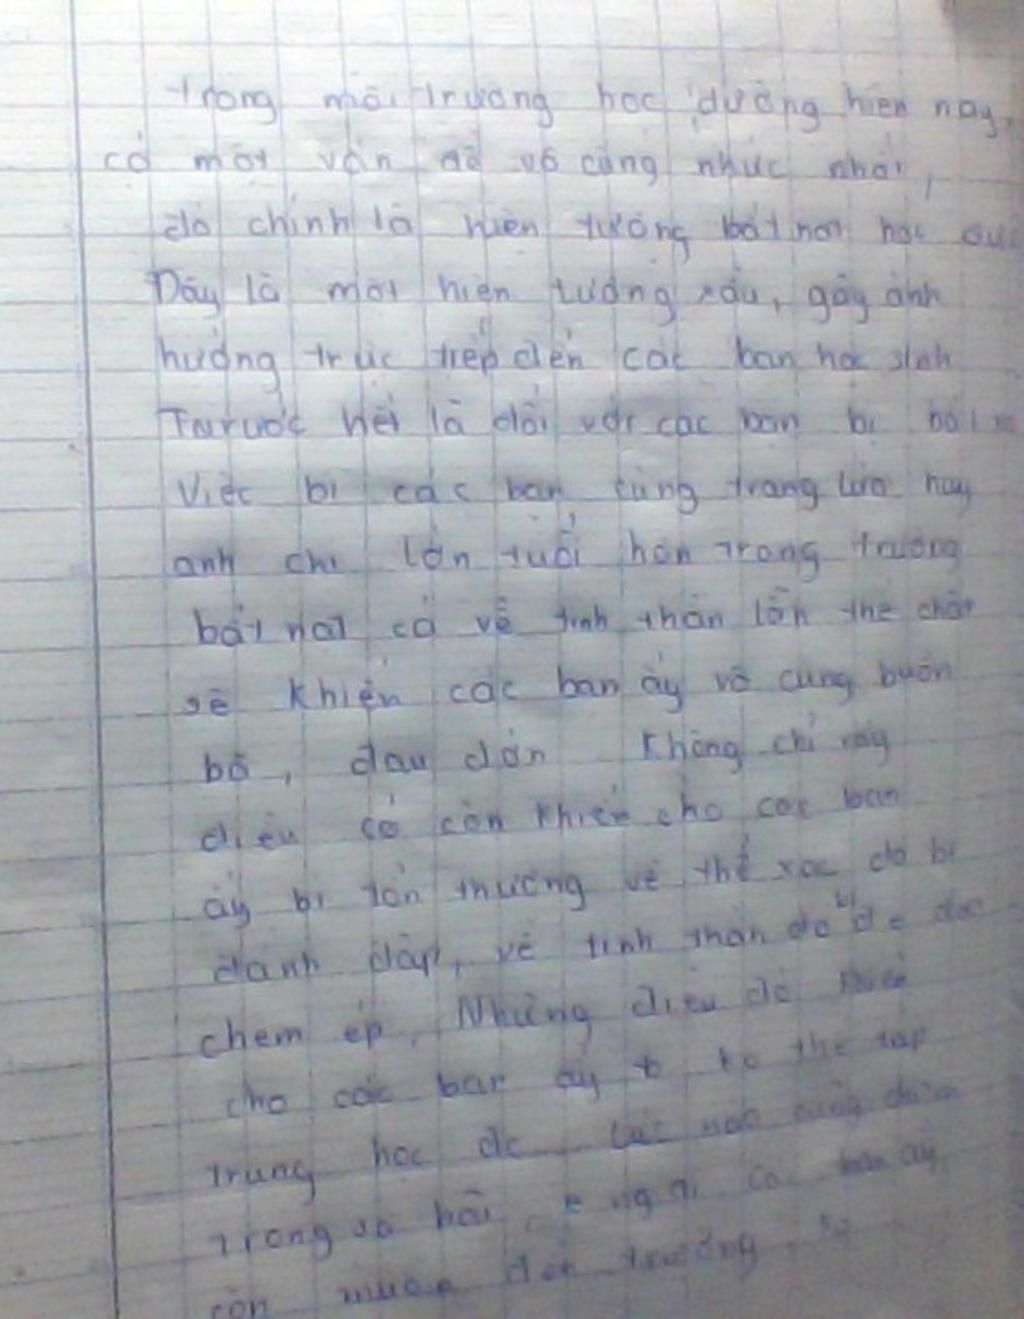 Trong môi trường học đường hiện nay,
có một vấn đề vô cùng nhức nhối,
đó chính là hiện tượng bắt nạt học
Đây là một hiện tượng xấu, gây ảnh
hưởng trực tiếp đến các bạn học sinh
Trước hết là đối với các bạn bị bắt
Việc bị các bạn cùng trang lứa hay
anh chị lớn tuổi hơn trong trường
bắt nạt cả về tinh thần lẫn thể chất
sẽ khiến các bạn ấy vô cùng buồn
bã, đau đớn Không chỉ vậy
điều đó còn khiến cho các bạn
ấy bị tổn thương về thể xác do bị
đánh đập, về tinh thần do bị đe dọa
chèm ép. Những điều đó
cho các bạn ấy ko thể tập
trung học đc Lúc nào cũng chìm
trong sợ hãi, e ngại bạn ấy
còn muốn đến trường